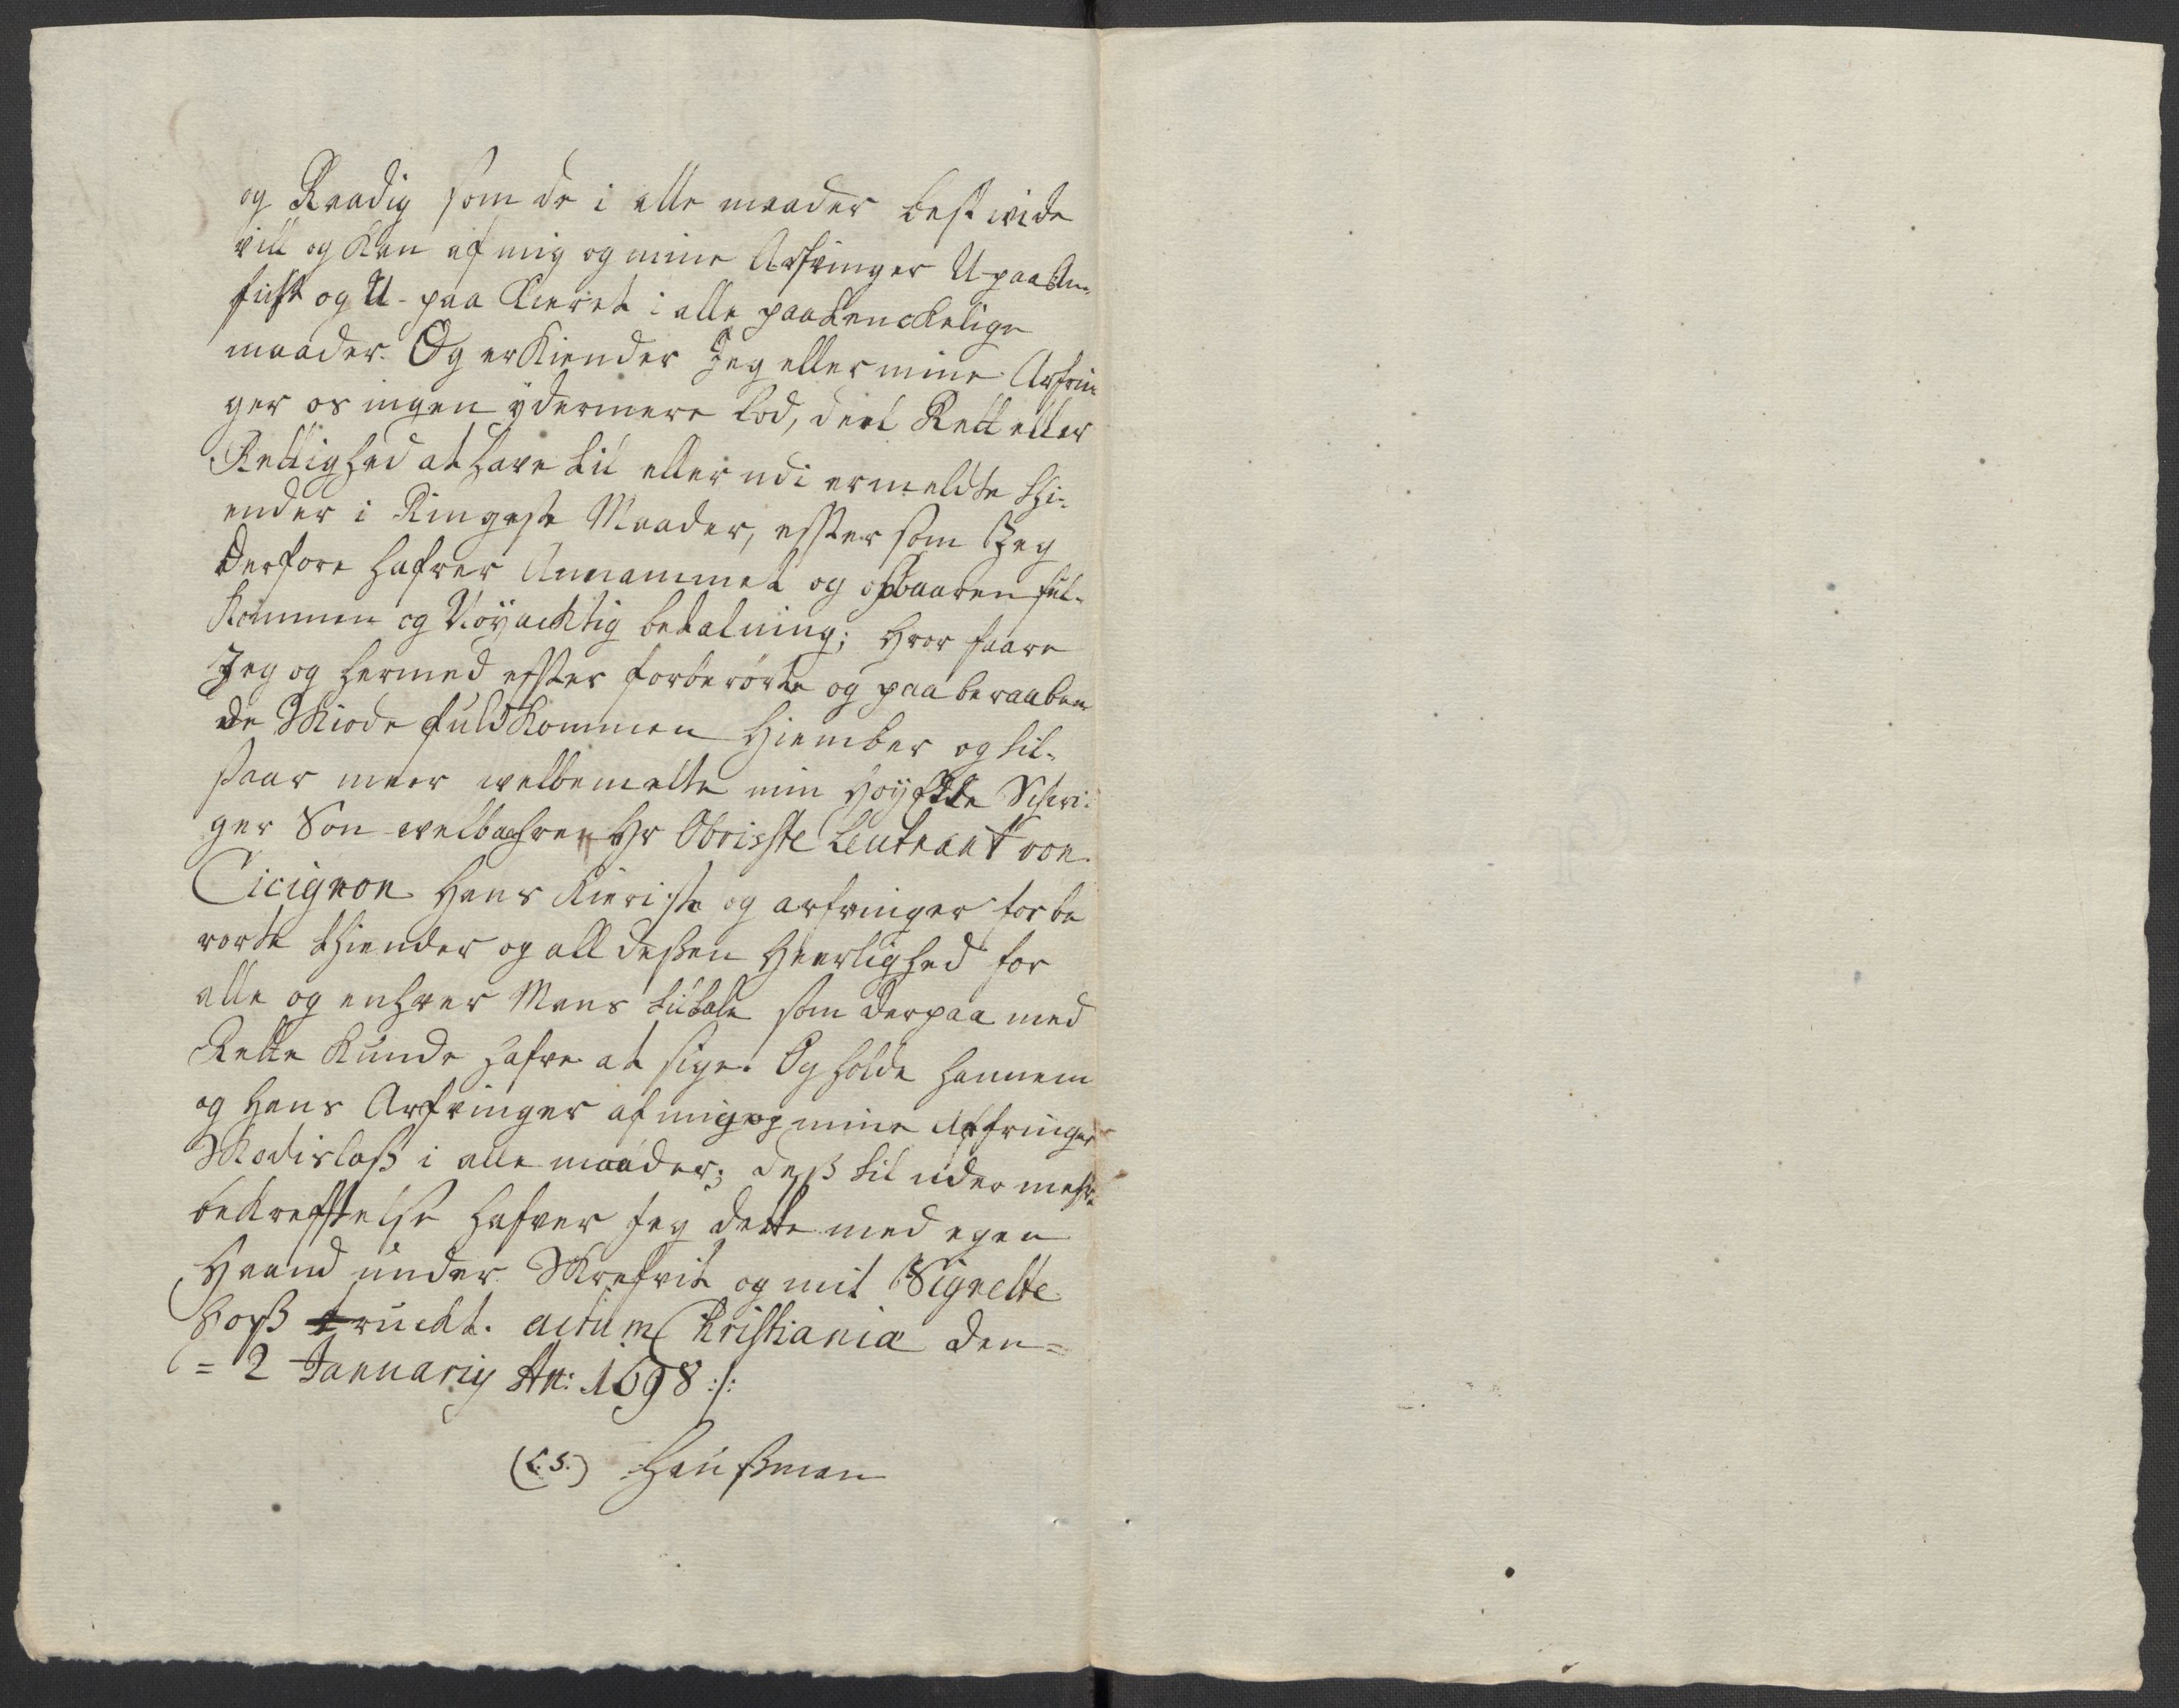 og Raadig som de i alle maader best vide
vill og Kan af mig og mine Arfvinger U-paaan-
ficht og U-paa Kieret i alle paatenckelige
maader. Og erKiender Jeg eller mine Arfvin-
ger os ingen ydermere Lod, deel Rett eller
Rettighed at have til eller udi ermeldte thi-
ender i Ringeste Maader, efter som Jeg
derfore hafver Annammet og opbaaren ful-
kommen og Nøyacktig betalning; hvor faare
Jeg og hermed efter forberørte og paaberaaben-
de Skiøde fuldkommen hiember og til-
staar meer welbemelte min høyErede Schwi-
ger Søn welbaahren Hr Obriste Leutnant von
Cicignon Hans Kieriste og arfvinger forbe
rørte thiender og all dessen Herlighed for
alle og enhver Mans tiltale som derpaa med
Rette Kunde hafve at sige. Og holde hannem
og Hans Arfvinger af mig og mine Arfvinger
Skadisløß i alle maader; deß til ider mehre
bekrefftelse hafver Jeg dette med egen
Haand under Skrefvit og mit Signette
hoß truckt. actum Christiania den=
= 2 Januarij An: 1698 :/:
(L.S.) Haußman